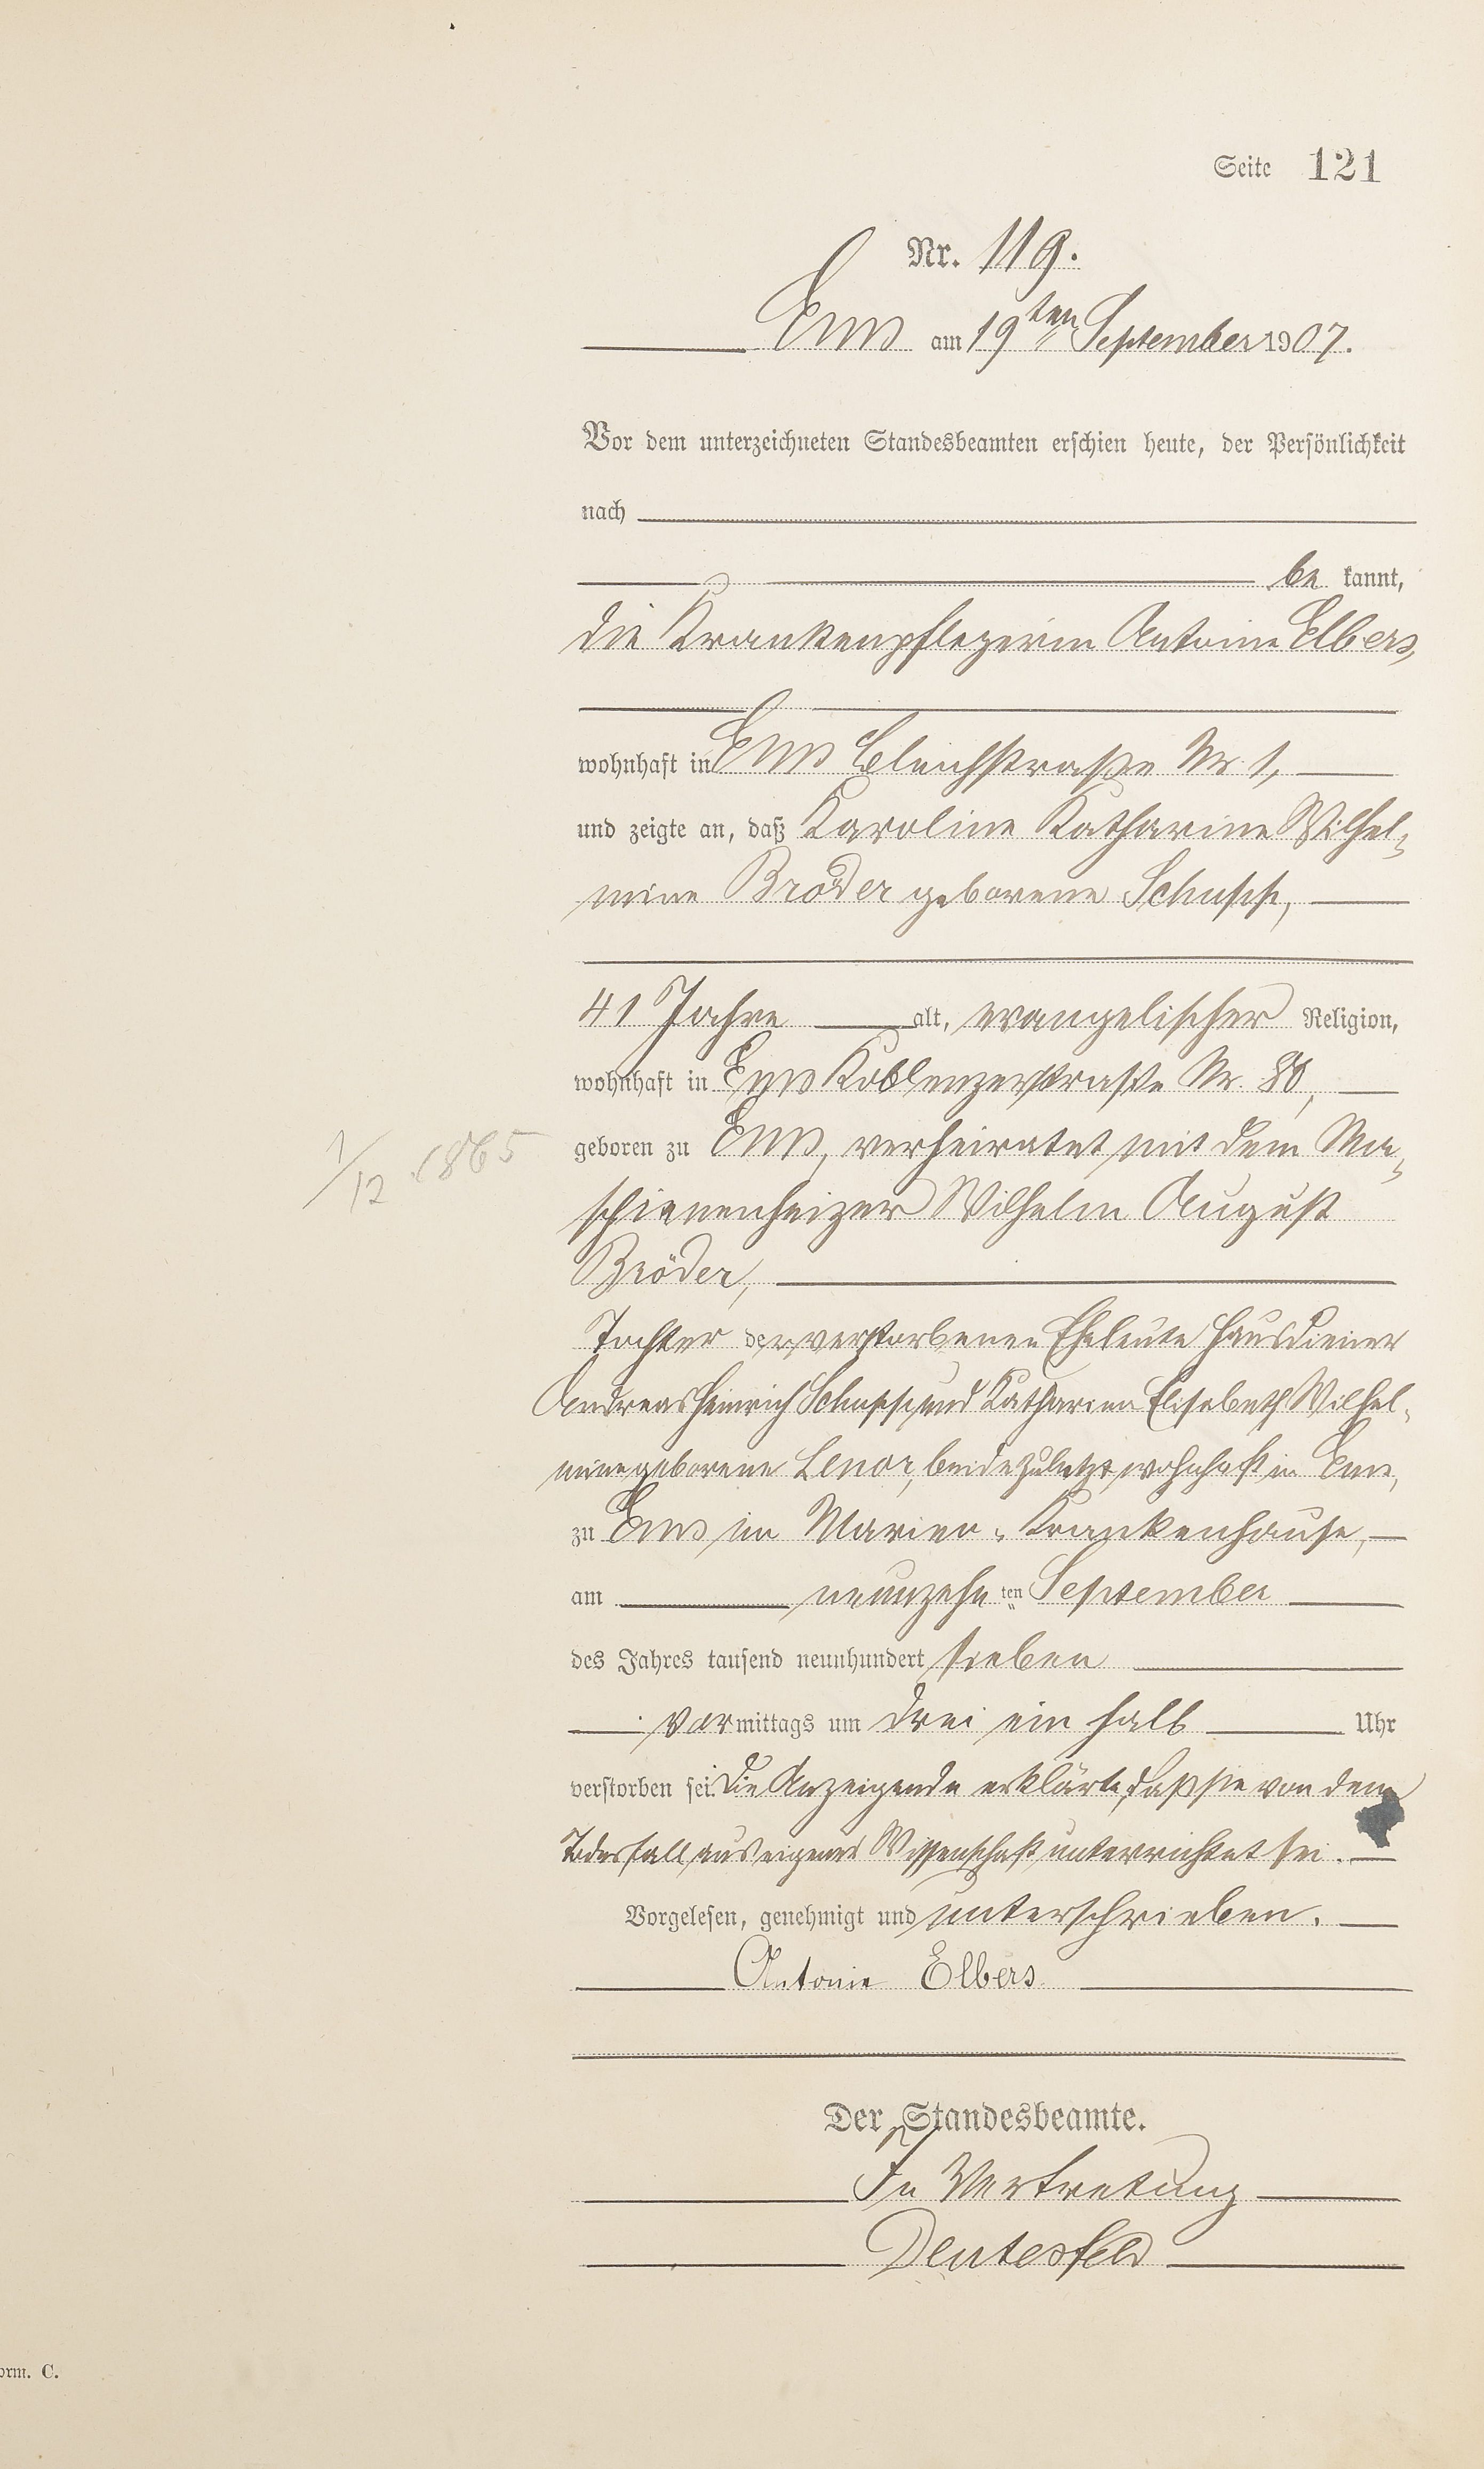 Seite 121
Nr. 119.
Ems am 19ten September 1907.
Vor dem unterzeichneten Standesbeamten erschien heute, der Persönlichkeit
nach
be kannt,
die Krankenpflegerin Antonie Elbers,
wohnhaft in Ems Bleichstraße Nr. 1,
und zeigte an, daß Karoline Katharine Wilhel-
mine Bröder geborene Schupp,
41 Jahre alt, evangelischer Religion,
wohnhaft in Ems Koblenzerstraße Nr. 80,
geboren zu Ems, verheiratet mit dem Ma-
1/12 1865
schinenheizer Wilhelm August
Bröder,
Tochter der verstorbenen Eheleute Hausdiener
Andreas Heinrich Schupp und Katharina Elisabeth Wilhel-
mine geborene Lenor, beide zuletzt wohnhaft in Ems,
zu Ems im Marien-Krankenhause,
am neunzehnten September
des Jahres tausend neunhundert sieben
vormittags um drei ein halb Uhr
verstorben sei. Die Anzeigende erklärte, daß sie von dem
Todesfall aus eigener Wissenschaft unterrichtet sei.
Vorgelesen, genehmigt und unterschrieben.
Antonie Elbers
Der Standesbeamte.
In Vertretung
Deutesfeld
orm. C.